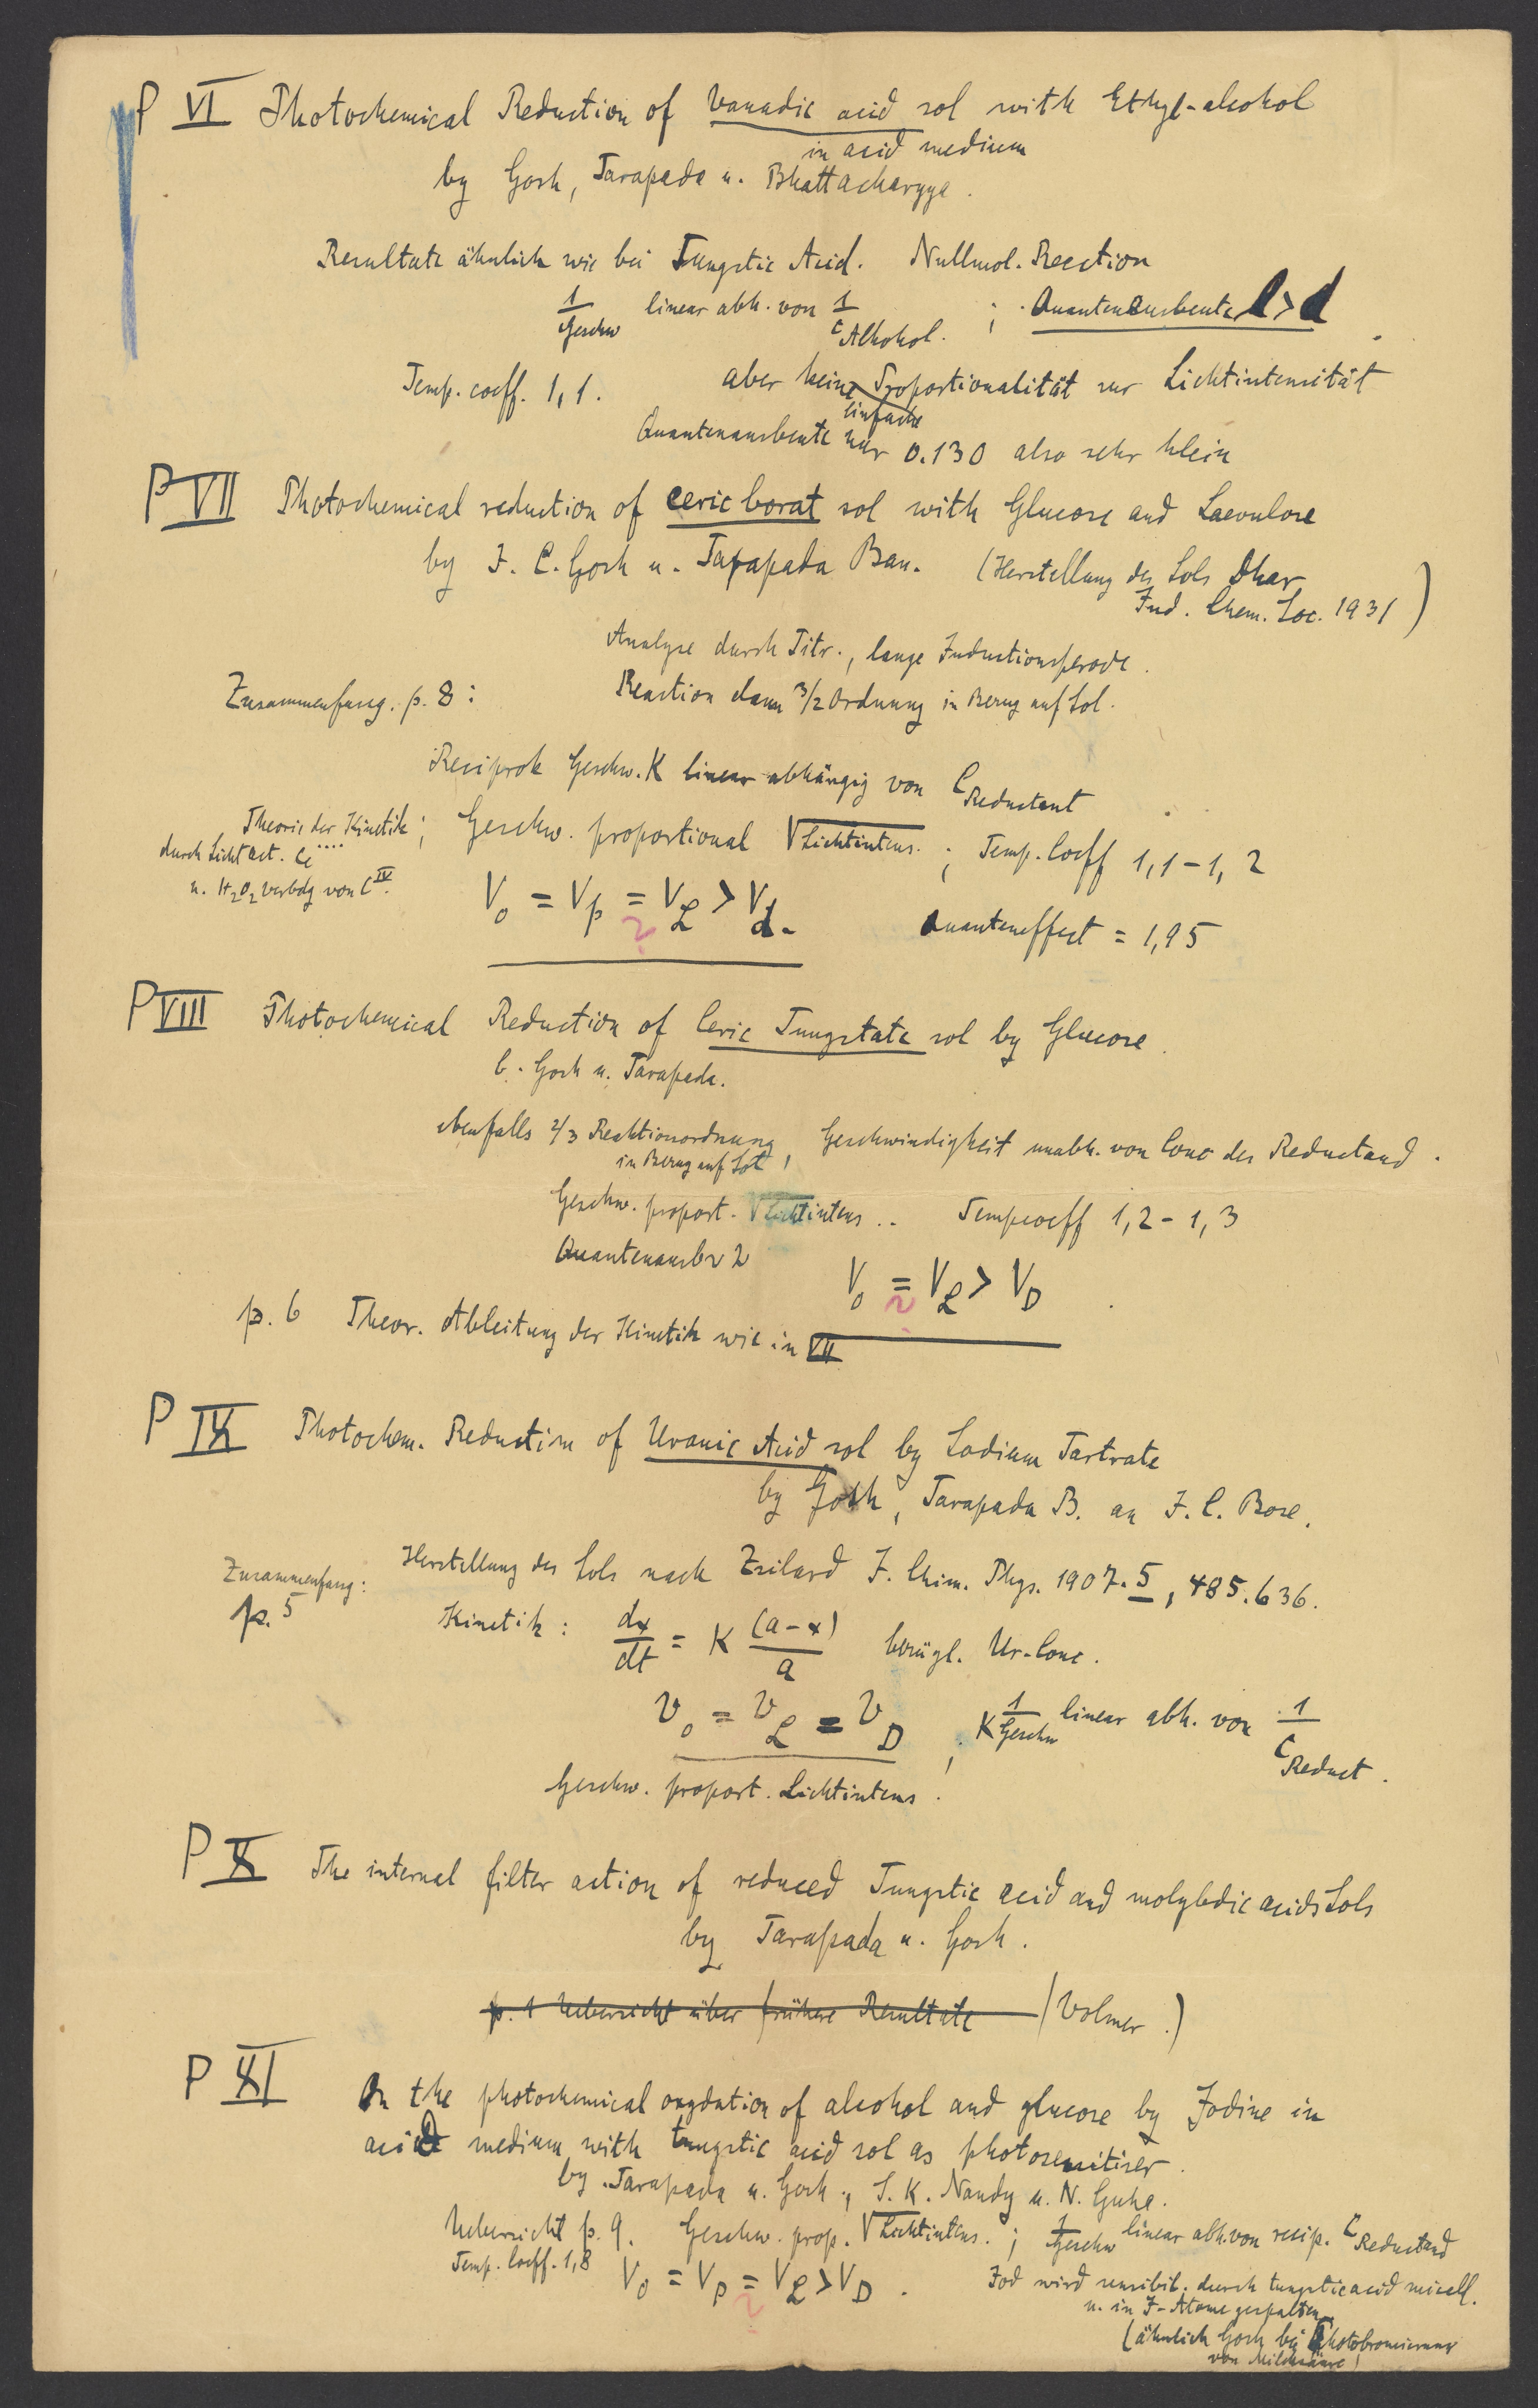 P VI Photochemical Reduction of Vanadic acid sol with Ethyl-alcohol
in acid medium
by Gosh, Tarapada u. Bhattacharyya.
Resultate ähnlich wie bei Tungstic Acid. Nullmol. Reaction
1/Geschw linear abh. von 1/C Alkohol. ; Quantenausbeute l > d
Temp. coeff. 1,1. aber keine Proportionalität zur Lichtintensität
einfache
Quantenausbeute nur 0.130 also sehr klein
P VII Photochemical reduction of ceric borat sol with Glucose and Laevulose
by J. C. Gosh u. Tarapada Ban. (Herstellung des Sols Dhar
Ind. Chem. Soc. 1931)
Analyse durch Titr., lange Inductionsperode.
Zusammenfassg. p. 8 : Reaction dann 3/2 Ordnung in Bezug auf Sol.
Reciprok Geschw. K linear abhängig von C Reductant
Theorie der Kinetik ; Geschw. proportional √Lichtintens. ; Temp. Coeff 1,1 – 1,2
durch Licht act. Ce····
u. H2O2 Verbdg von C IV.
V0 = Vp = Vl > Vd. Quanteneffect = 1,95
?
P VIII Photochemical Reduction of Ceric Tungstate sol by Glucose.
b. Gosh u. Tarapada.
ebenfalls 2/3 Reaktionsordnung, Geschwindigkeit unabh. von Conc des Reductand.
in Bezug auf Sol,
Geschw. proport. √Lichtintens .. Tempcoeff 1,2 – 1,3
Quantenausb ~ 2
V0 = Vl > VD
?
p. 6 Theor. Ableitung der Kinetik wie in VII
P IX Photochem. Reduction of Uranic Acid sol by Sodium Tartrate
by Gosh, Tarapada B. an J. C. Bose.
Zusammenfassg: Herstellung des Sols nach Zsilard J. Chim. Phys. 1907. 5, 485.636.
p. 5
Kinetik : dx/dt = K (a-x)/a bezügl. Ur-Conc.
v0 = vl = vD , K 1/Geschw linear abh. von 1/C Reduct.
Geschw. proport. Lichtintens.
P X The internal filter action of reduced Tungstic acid and molybdic acids Sols
by Tarapada u. Gosh.
p. 1 Uebersicht über frühere Resultate (Volmer.)
P XI On the photochemical oxydation of alcohol and glucose by Jodine in
acid medium with tungstic acid sol as photosensitiser.
by Tarapada u. Gosh, S. K. Nandy u. N. Guha.
Uebersicht p. 9. Geschw. prop. √Lichtintens. ; 1/Geschw linear abh. von recip. C Reductand
Temp. Coeff. 1,8 V0 = Vp = Vl > VD .
?
Jod wird sensibil. durch tungsticacid micell.
u. in J-Atome gespalten
(ähnlich Gosh bei Photobromierung
von Milchsäure)